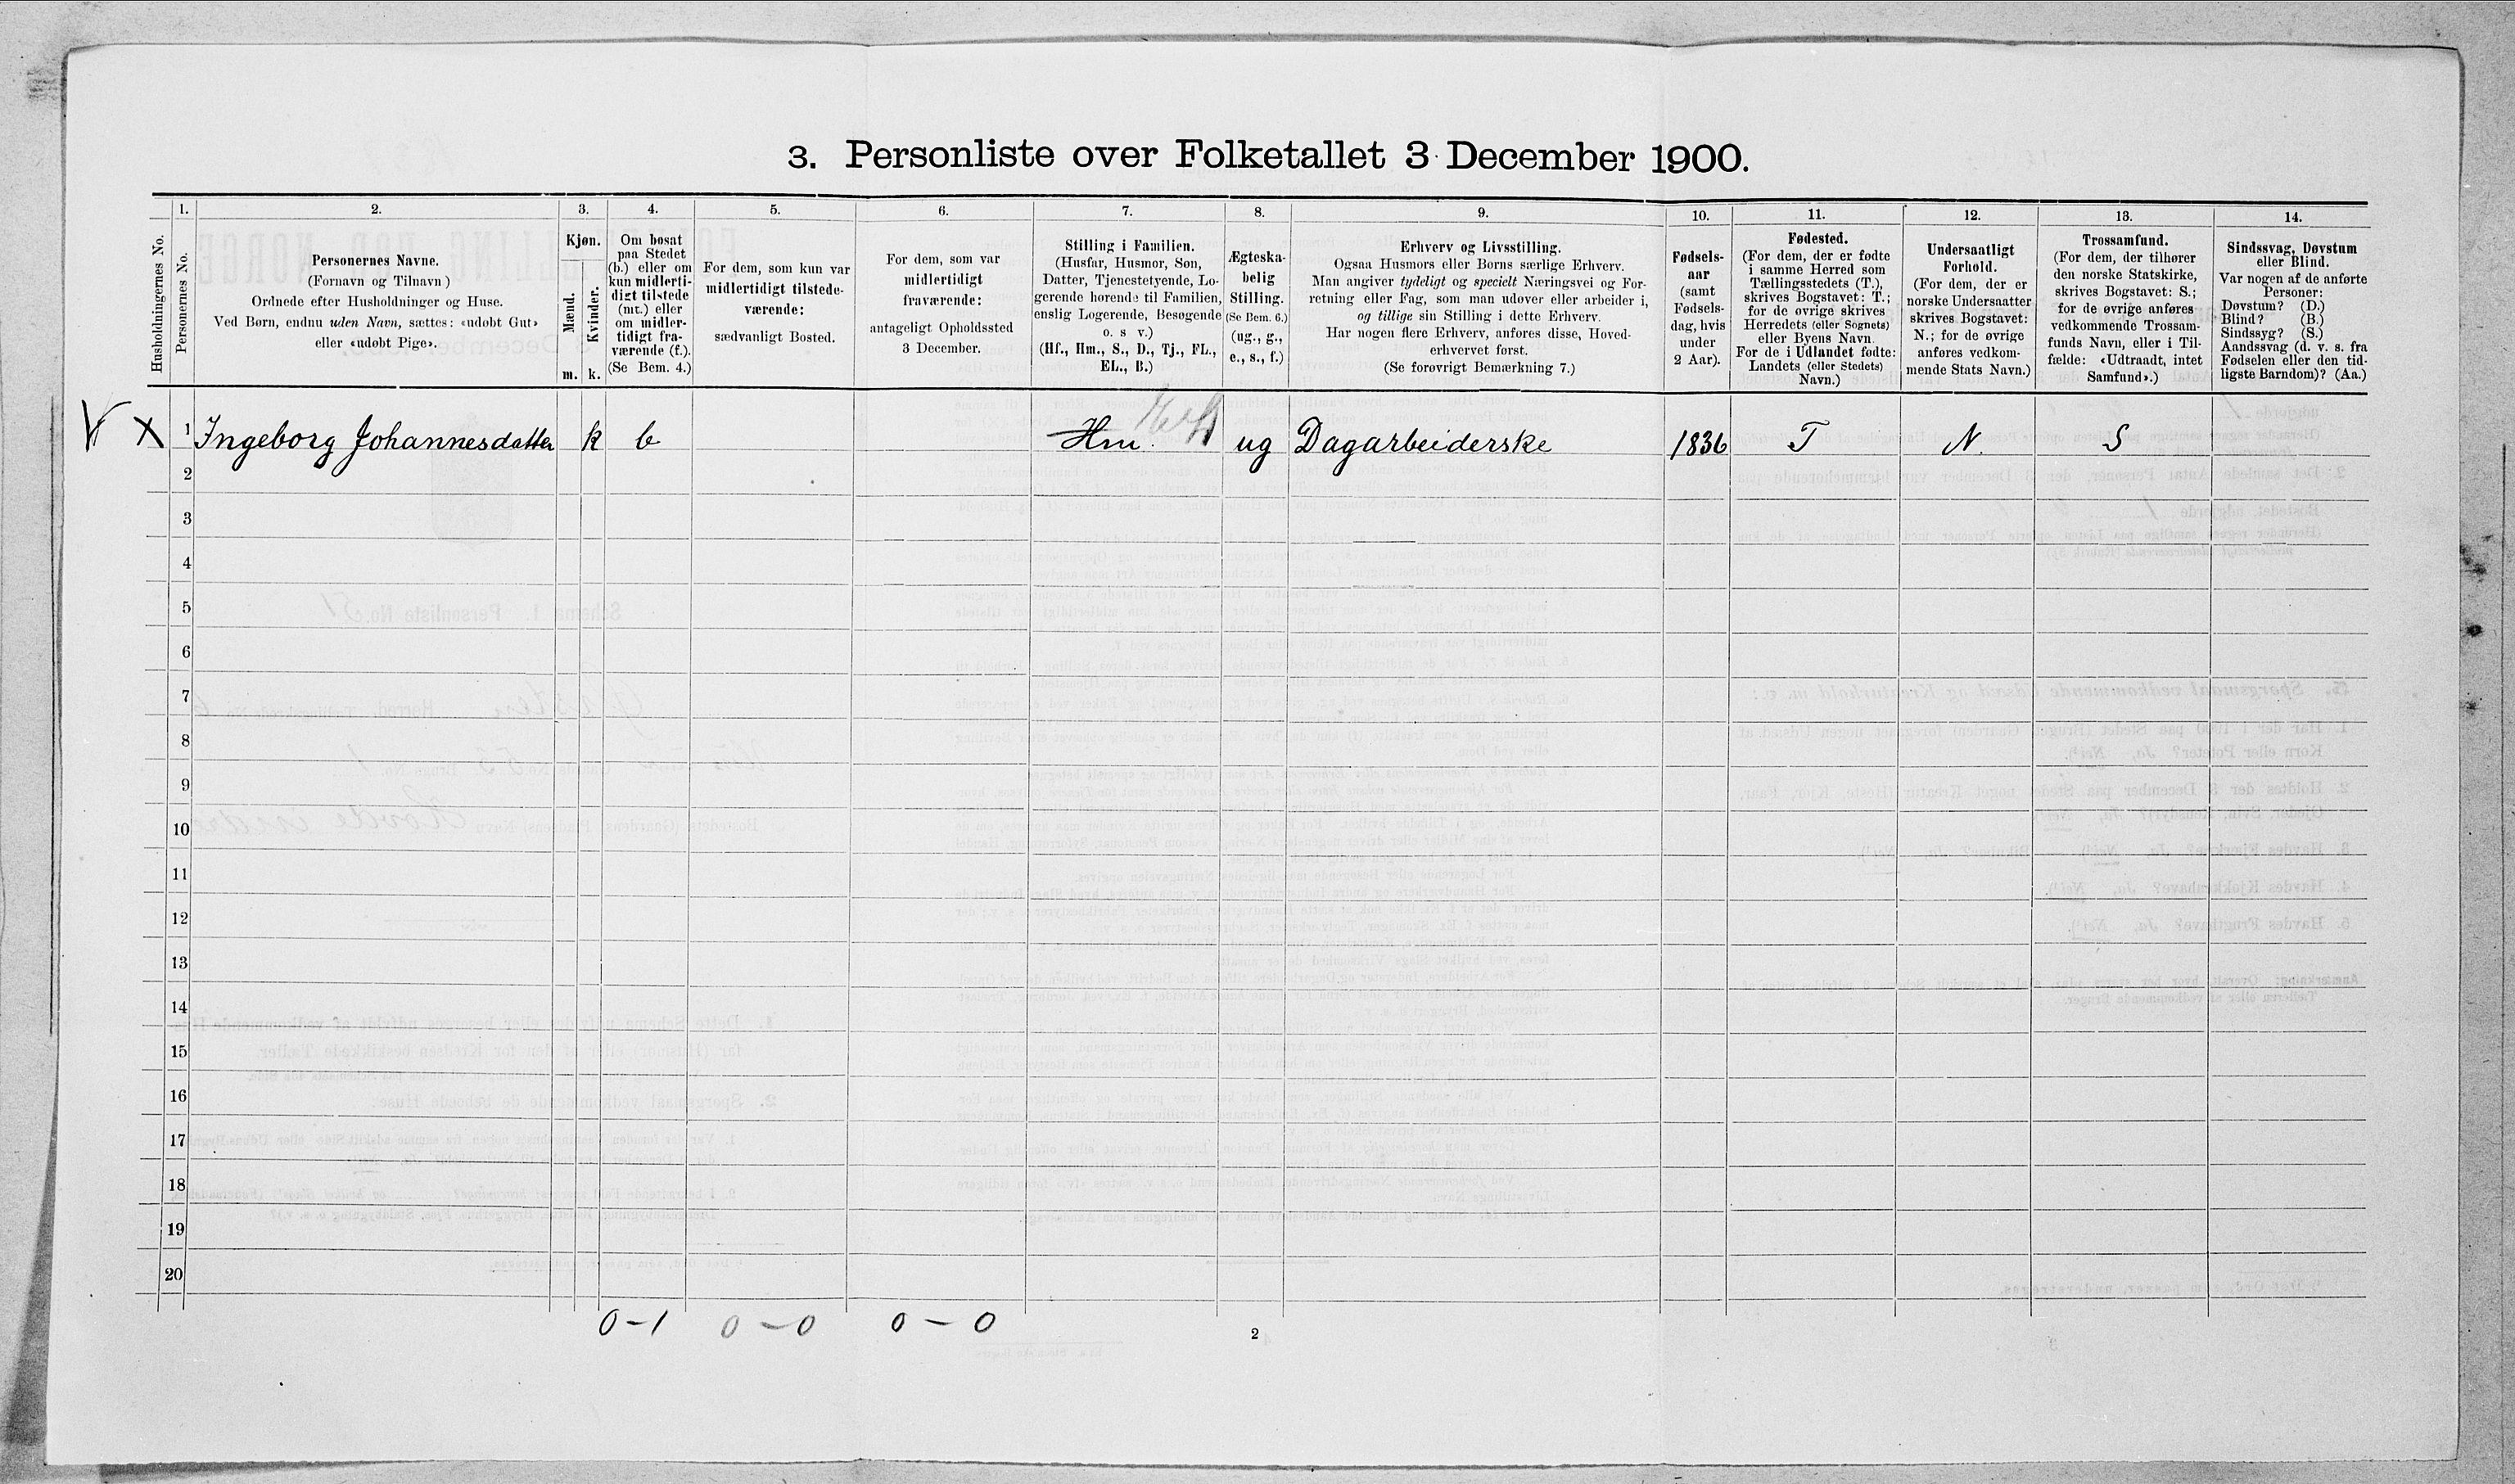 3. Personliste over Folketallet 3 December 1900.
1. 2. 3. 4. 5. 6. 7. 8. 9. 10. 11. 12. 13. 14.
Husholdningernes No.
Personernes No.
Personernes Navne.
(Fornavn og Tilnavn)
Ordnede efter Husholdninger og Huse.
Ved Børn, endnu uden Navn, sættes: «udøbt Gut»
eller «udøbt Pige».
Kjøn.
Mænd.
Kvinder.
m. k.
Om bosat
paa Stedet
(b.) eller om
kun midlerti-
digt tilstede
(mt.) eller
om midler-
tidigt fra-
værende (f.).
(Se Bem. 4.)
For dem, som kun var
midlertidigt tilstede-
værende:
sædvanligt Bosted.
For dem, som var
midlertidigt
fraværende:
antageligt Opholdssted
3 December.
Stilling i Familien.
(Husfar, Husmor, Søn,
Datter, Tjenestetyende, Lo-
gerende hørende til Familien,
enslig Logerende, Besøgende
o. s v.)
(Hf., Hm., S., D., Tj., FL.,
EL., B.)
Ægteska-
belig
Stilling.
(Se Bem. 6.)
(ug., g.,
e., s., f.)
Erhverv og Livsstilling.
Ogsaa Husmors eller Børns særlige Erhverv.
Man angiver tydeligt og specielt Næringsvei og For-
retning eller Fag, som man udøver eller arbeider i,
og tillige sin Stilling i dette Erhverv.
Har nogen flere Erhverv, anføres disse, Hoved-
erhvervet først.
(Se forøvrigt Bemærkning 7.)
Fødsels-
aar
(samt
Fødsels-
dag, hvis
under
2 Aar).
Fødested.
(For dem, der er fødte
i samme Herred som
Tællingsstedets (T.),
skrives Bogstavet: T.;
for de øvrige skrives
Herredets (eller Sognets)
eller Byens Navn.
For de i Udlandet fødte:
Landets (eller Stedets)
Navn.)
Undersaatligt
Forhold.
(For dem, der er
norske Undersaatter
skrives Bogstavet:
N.; for de øvrige
anføres vedkom-
mende Stats Navn.)
Trossamfund.
(For dem, der tilhører
den norske Statskirke,
skrives Bogstavet: S.;
for de øvrige anføres
vedkommende Trossam-
funds Navn, eller i Til-
fælde: «Udtraadt, intet
Samfund».)
Sindssvag, Døvstum
eller Blind.
Var nogen af de anførte
Personer:
Døvstum? (D.)
Blind? (B.)
Sindssyg? (S.)
Aandssvag (d. v. s. fra
Fødselen eller den tid-
ligste Barndom)? (Aa.)
X 1 Ingeborg Johannesdatter k b Hm. ug Dagarbeiderske 1836 T N. S
2
3
4
5
6
7
8
9
10
11
12
13
14
15
16
17
18
19
20
0-1 0-0 0-0
2